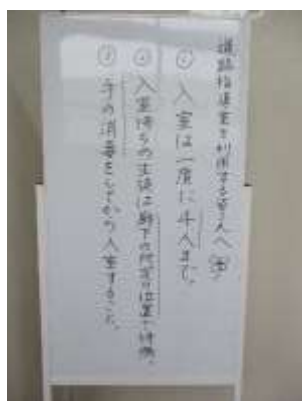 進路指導室を利用する皆さんへ
① 入室は一度に4人まで。
② 入室待ちの生徒は廊下の所定の位置で待機。
③ 手の消毒をしてから入室すること。